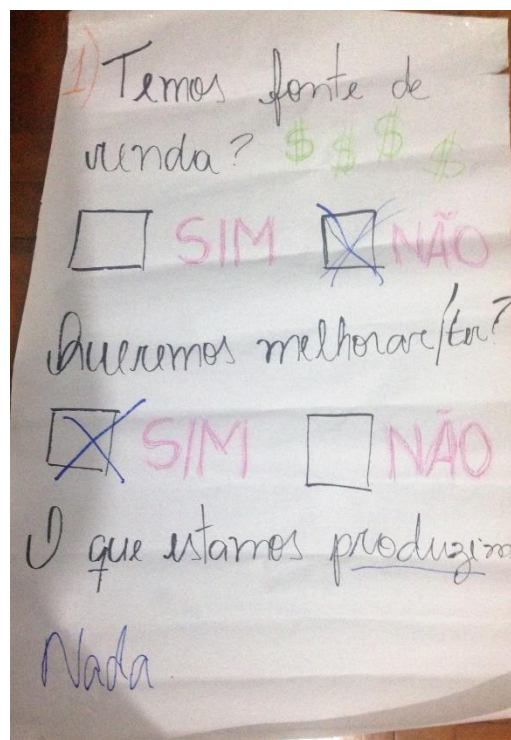 1) Temos fonte de
renda? $ $ $ $
SIM X NÃO
Queremos melhorar/ter?
X SIM NÃO
O que estamos produzin
Nada